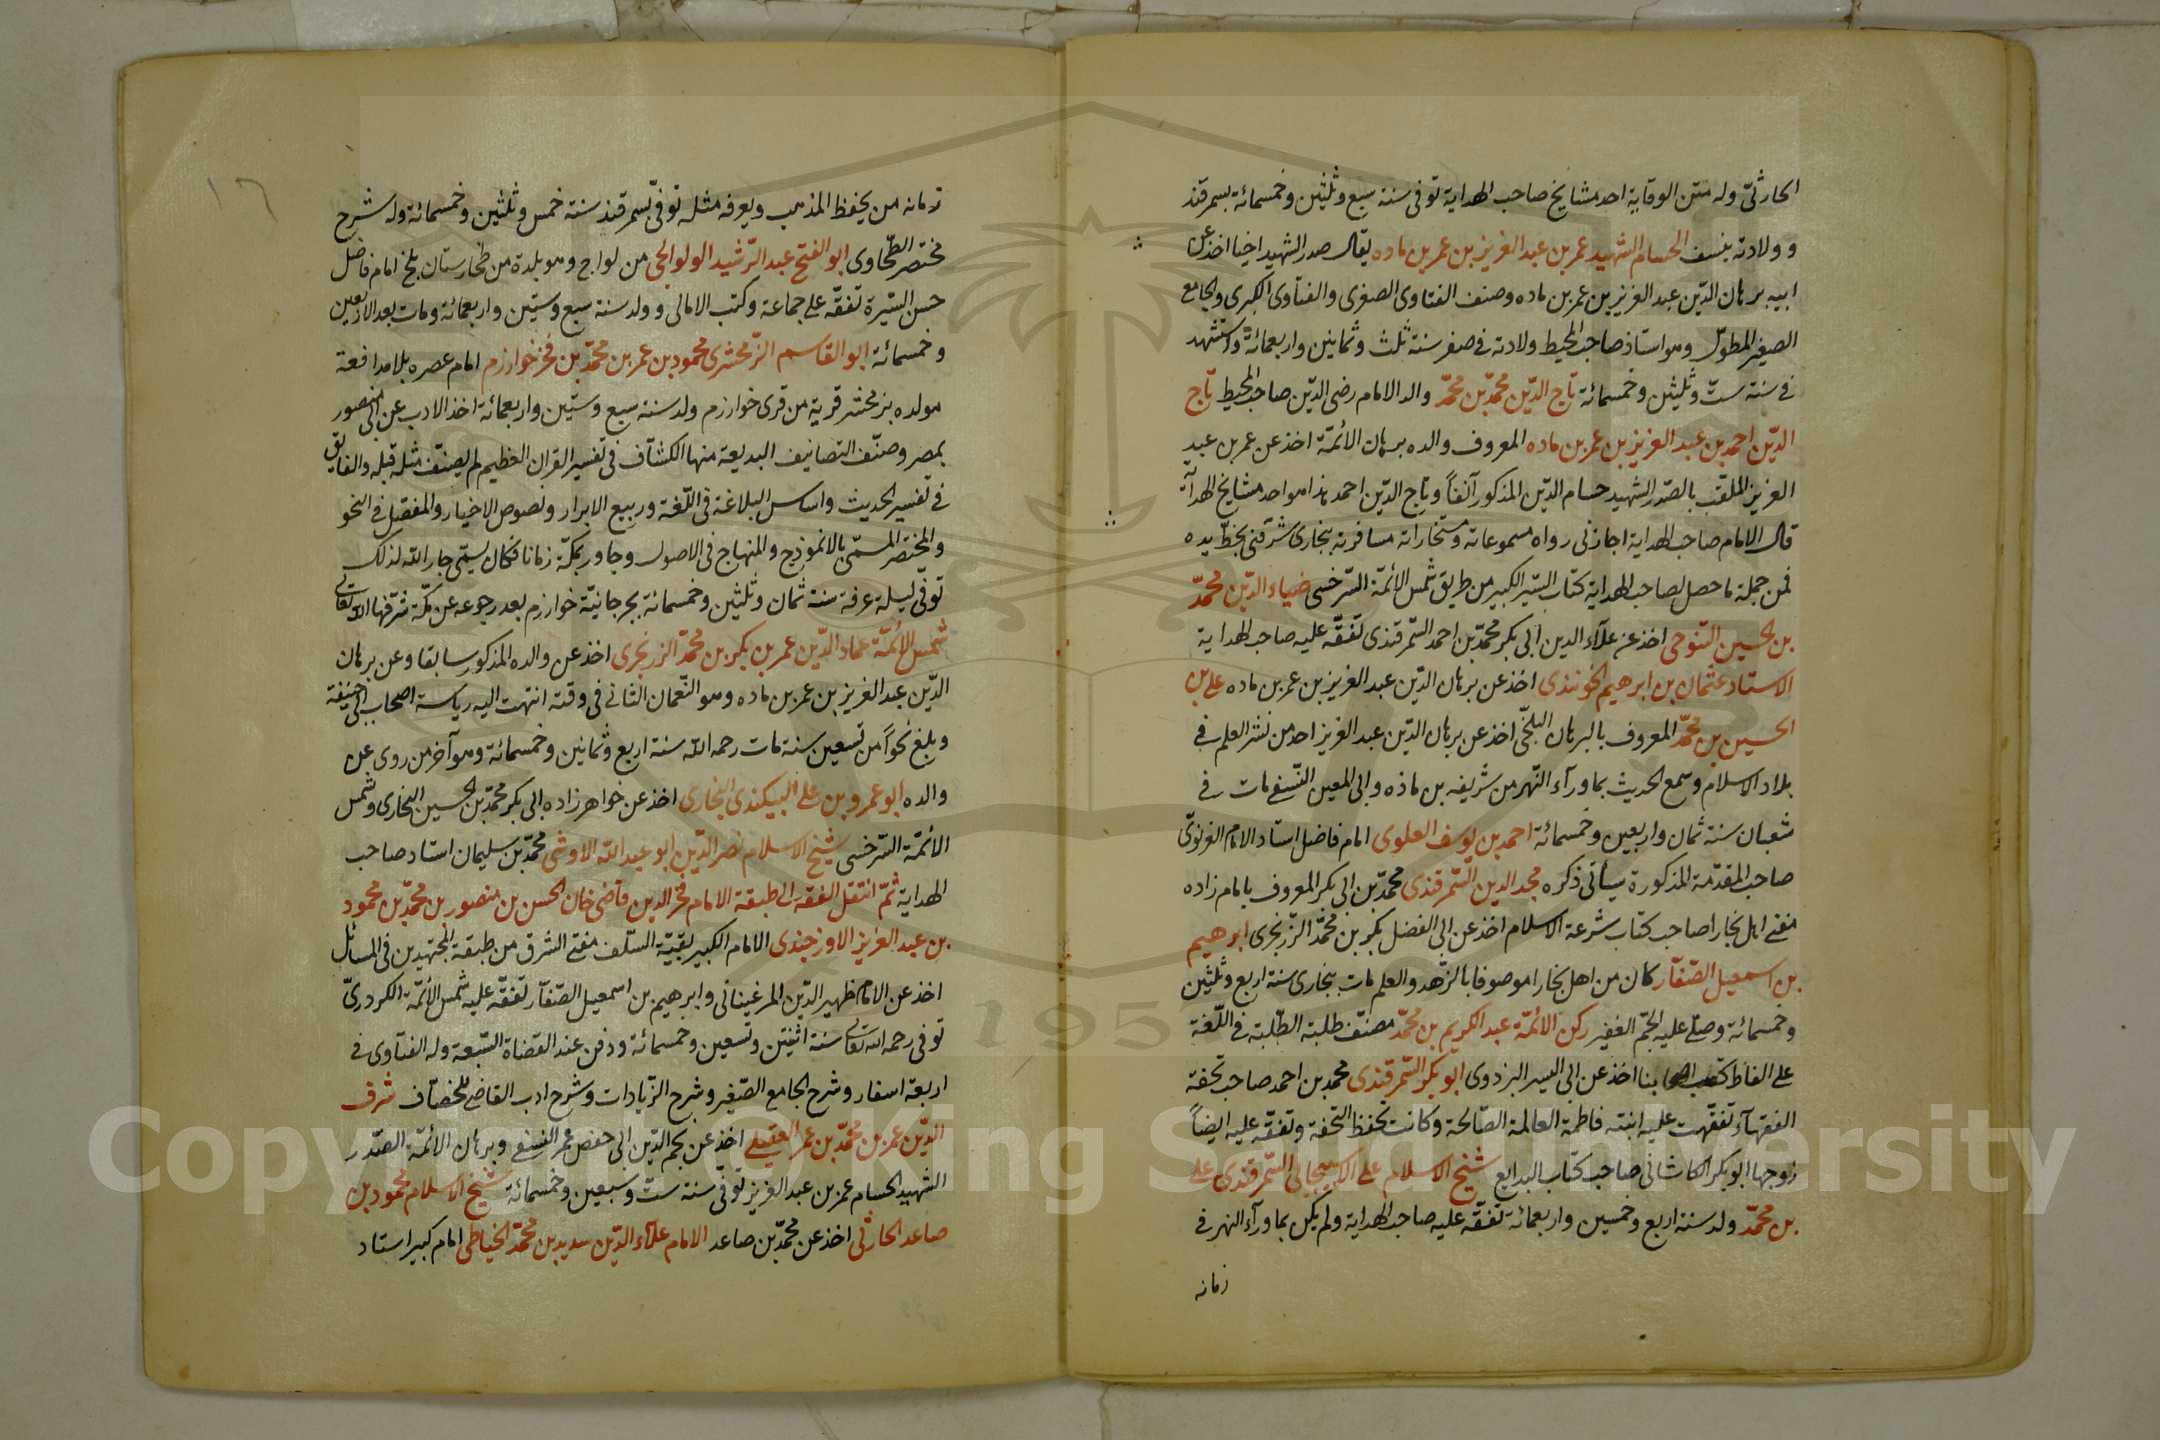 الحارثىّ وله متن الوقاية احد مشايخ صاحب الهداية توفى سنة سبع وثلثين وخمسمائة بسمرقند
وولادته بنسف الحسام الشهيد عمر بن عبد العزيز بن عمر بن ماده يقال صدر الشهيد اخيا اخذ عن
ابيه برهان الدّين عبد العزيز بن عمر بن ماده وصنف الفتاوى الصغرى والفتاوى الكبرى والجامع
الصغير المطوّل وهو استاذ صاحب المحيط ولادته فى صفر سنة ثلث وثمانين واربعمائة واستشهد
فى سنة ستّ وثلثين وخمسمائة تاج الدّين محمّد بن محمّد والد الامام رضى الدّين صاحب المحيط تاج
الدّين احمد بن عبد العزيز بن عمر بن ماده المعروف والده ببرهان الأئمّة اخذ عن عمر بن عبد
العزيز الملقّب بالصّدر الشهيد حسام الدّين المذكور آنفاً وتاج الدّين احمد هذا هو احد مشايخ الهداية
قال الامام صاحب الهداية اجازنى رواه مسموعاته ومستخاراته مسافرته بخارى شرّفنى بخطّ يده
فمن جملة ما حصل لصاحب الهداية كتاب السّير الكبير من طريق شمس الأئمّة السّرخسى ضياء الدّين محمّد
بن الحسين التنوحى اخذ عن علآء الدين ابى بكر محمّد بن احمد السّمرقندى تفقّه عليه صاحب الهداية
الاستاد عثمان بن ابرهيم الخونندى اخذ عن برهان الدّين عبد العزيز بن عمر بن ماده على بن
الحسين بن محمّد المعروف بالبرهان البلخىّ اخذ عن برهان الدّين عبد العزيز احد من نشر العلم فى
بلاد الاسلام وسمع الحديث بماورآء النّهر من شريفه بن ماذه وابى المعين النّسفى مات فى
شعبان سنة ثمان واربعين وخمسمائة احمد بن يوسف العلوى امام فاضل استاد الامام الغزنوىّ
صاحب المقدّمة المذكورة سيأتى ذكره مجد الدين السّمرقندى محمّد بن ابى بكر المعروف بامام زاده
مفتى اهل بخارا صاحب كتاب شرعة الاسلام اخذ عن ابى الفضل بكر بن محمّد الزّرنجرى ابرهيم
بن اسمعيل الصّفّار كان من اهل بخارا موصوفا بالزّهد والعلم مات ببخارى سنة اربع وثلثين
وخمسمائة وصلّى عليه الجمّ الغفير ركن الائمّة عبد الكريم بن محمّد مصنّف طلبة الطّلبة فى اللّغة
على الفاظ كتب اصحابنا اخذ عن ابى اليسر البزدوى ابو بكر السّمرقندى محمد بن احمد صاحب تحفة
الفقهآء تفقّهت عليه ابنته فاطمة العالمة الصّالحة وكانت تحفظ التّحفة وتفقّه عليه ايضاً
زوجها ابو بكر الكاشانى صاحب كتاب البدايع شيخ الاسلام على الاسبيجابى السّمرقندى على
بن محمّد ولد سنة اربع وخمسين واربعمائة تفقّه عليه صاحب الهداية ولم يكن بماورآء النهر فى
زمانه
زمانه من يحفظ المذهب ويعرفه مثله توفّى بسمرقند سنة خمس وثلثين وخمسمائة وله شرح
مختصر الطّحاوى ابو الفتح عبد الرّشيد الولوالجى من لوالج وهو بلدة من طخارستان بلخ امام فاضل
حسن السّيرة تفقّه على جماعة وكتب الامالى وولد سنة سبع وستّين واربعمائة ومات بعد الاربعين
وخمسمائة ابو القاسم الزّمخشرى محمود بن عمر بن محمّد بن فخر خوارزم امام عصره بلا مدافعة
مولده بزمخشر قرية من قرى خوارزم ولد سنة سبع وستّين واربعمائة اخذ الادب عن ابى منصور
بمصر وصنّف التصانيف البديعة منها الكشّاف فى تفسير القران العظيم لم يصنّف مثله قبله والفايق
فى تفسير الحديث واساس البلاغة فى اللّغة وربيع الابرار ونصوص الاخيار والمفصّل فى النحو
والمختصر المسمّى بالانموذج والمنهاج فى الاصول وجاور بمكّة زمانا فكان يسمّى جار اللّه لذلك
توفّى ليلة عرفة سنة ثمان وثلثين وخمسمائة بجرجانيّة خوارزم بعد رجوعه عن مكّة شرّفها اللّه تعالى
شمس الأئمّة عماد الدّين عمر بن بكر بن محمّد الزرنجرى اخذ عن والده المذكور سابقا وعن برهان
الدّين عبد العزيز بن عمر بن ماده وهو النّعمان الثانى فى وقته انتهت اليه رياسة اصحاب ابى حنيفة
وبلغ نحواً من تسعين سنة مات رحمه اللّه سنة اربع وثمانين وخمسمائة وهو آخر من روى عن
والده ابو عمرو بن على البيكندى البخارى اخذ عن خواهر زاده ابى بكر محمّد بن الحسين البخارى وشمس
الأئمّة السّرخسى شيخ الاسلام نصر الدّين ابو عبد اللّه الاوشى محمّد بن سليمان استاد صاحب
الهداية ثمّ انتقل الفقه الى طبقة الامام فخر الدين قاضى خان الحسن بن منصور بن محمّد بن محمود
بن عبد العزيز الاوزجندى الامام الكبير بقيّة السّلف مفتى الشرق من طبقة المجتهدين فى المسائل
اخذ عن الامام ظهير الدّين المرغينانى وابرهيم بن اسمعيل الصّفّار تفقّه عليه شمس الأئمّة الكردرىّ
توفى رحمه اللّه تعالى سنة اثنتين وتسعين وخمسمائة ودفن عند القضاة السّبعة وله الفتاوى فى
اربعة اسفار وشرح الجامع الصّغير وشرح الزّيادات وشرح ادب القاضى للخصّاف شرف
الدّين عمر بن محمّد بن عمر العقيلى اخذ عن نجم الدّين ابى حفص عمر النسفى وبرهان الائمّة الصّدر
الشهيد الحسام عمر بن عبد العزيز توفّى سنة ستّ وسبعين وخمسمائة شيخ الاسلام محمود بن
صاعد الحارثى اخذ عن محمّد بن صاعد الامام علآء الدّين سديد بن محمّد الخياطى امام كبير استاد
١٦
Copyright © King Saud University
1957